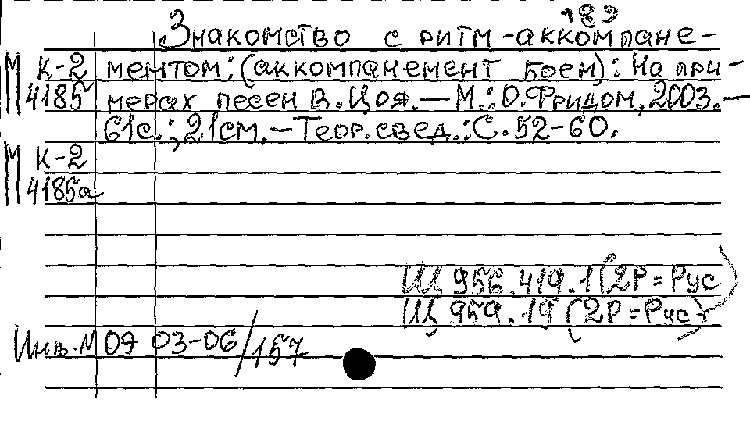 189
Знакомство с ритм-аккомпане-
К-2 ментом: (аккомпанемент боем): На при-
4185 мерах песен В. Цоя. — М.: О. Фридом, 2003. —
61с.; 21см. — Теор. свед.: С. 52-60.
К-2
4185а
Щ 956.419.1(2Р=Рус)
Щ 959.19 (2Р=Рус)
Инв. М 07 03-06/157